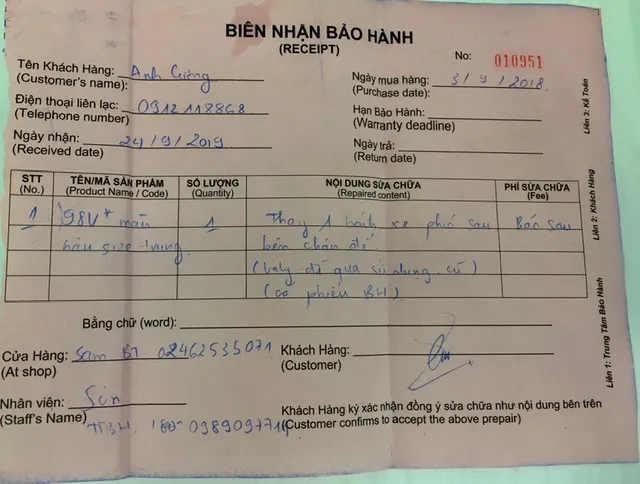 BIÊN NHẬN BẢO HÀNH
(RECEIPT)
No: 010951
Tên Khách Hàng: Anh Cường
(Customer's name):
Ngày mua hàng: 3/9/2018.
(Purchase date):
Điện thoại liên lạc: 0912118868
(Telephone number)
Hạn Bảo Hành:
(Warranty deadline)
Ngày nhận: 24/9/2019
(Received date)
Ngày trả:
(Return date)
STT TÊN/MÃ SẢN PHẨM SỐ LƯỢNG NỘI DUNG SỬA CHỮA PHÍ SỬA CHỮA
(No.) (Product Name / Code) (Quantity) (Repaired content) (Fee)
1 màu 1 Thay 1 bánh xe phía sau Báo sau
size trung bên chân đế
(Valy đã qua sử dụng, cũ)
(có phiếu BH)
Bằng chữ (word):
Cửa Hàng: 02462535071
(At shop)
Khách Hàng:
(Customer)
Nhân viên: Sơn
(Staff's Name) TTBH.
Khách Hàng ký xác nhận đồng ý sửa chữa như nội dung bên trên
(Customer confirms to accept the above prepair)
Liên 1: Trung Tâm Bảo Hành
Liên 2: Khách Hàng
Liên 3: Kế Toán